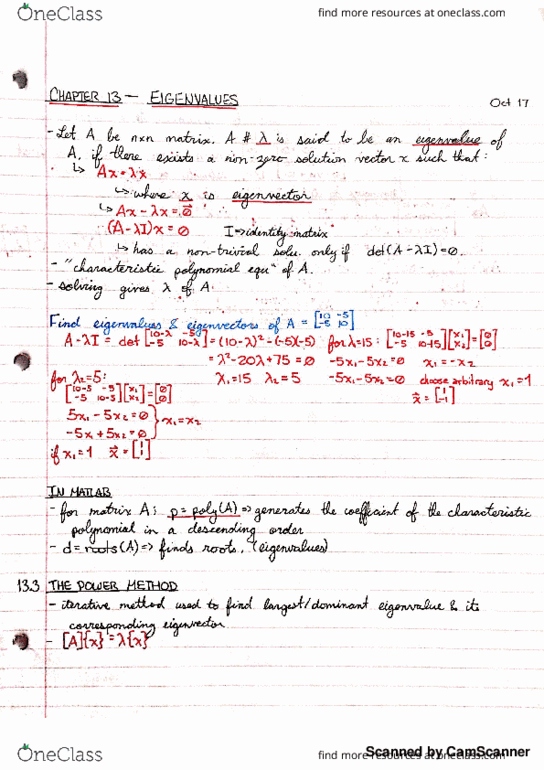 OneClass find more resources at oneclass.com
CHAPTER 13 — EIGENVALUES
Oct 17
- Let A be nxn matrix. A # λ is said to be an eigenvalue of
A, if there exists a non-zero solution vector x such that:
↳ Ax = λx
↳ where x is eigenvector
↳ Ax - λx = 0
(A - λI)x = 0 I => identity matrix
↳ has a non-trivial solu. only if det(A - λI) = 0.
- "characteristic polynomial equⁿ of A.
- solving gives λ of A
Find eigenvalues & eigenvectors of A = [10 -5; -5 10]
A - λI = det [10-λ -5; -5 10-λ] = (10-λ)² - (-5)(-5) for λ=15: [10-15 -5; -5 10-15][x₁; x₂] = [0; 0]
= λ² - 20λ + 75 = 0 -5x₁ - 5x₂ = 0 x₁ = -x₂
for λ₂=5: λ₁=15 λ₂=5 -5x₁ - 5x₂ = 0 choose arbitrary x₁=1
[10-5 -5; -5 10-5][x₁; x₂] = [0; 0] x⃗ = [1; -1]
5x₁ - 5x₂ = 0
-5x₁ + 5x₂ = 0 } x₁ = x₂
if x₁=1 x⃗ = [1; 1]
IN MATLAB
- for matrix A: p = poly(A) => generates the coefficient of the characteristic
polynomial in a descending order
- d = roots(A) => finds roots. (eigenvalues)
13.3 THE POWER METHOD
- iterative method used to find largest/dominant eigenvalue & its
corresponding eigenvector.
- [A]{x} = λ{x}
Scanned by CamScanner
OneClass find more resources at oneclass.com